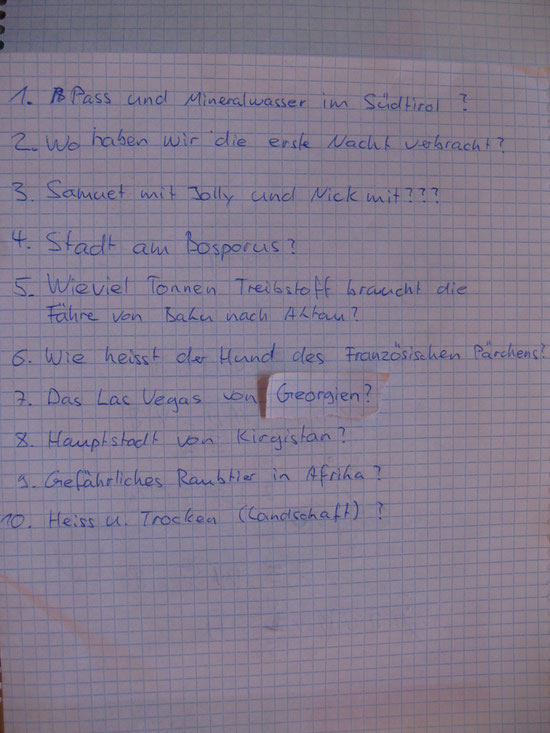 1. Pass und Mineralwasser im Südtirol ?
2. Wo haben wir die erste Nacht verbracht?
3. Samuel mit Jolly und Nick mit???
4. Stadt am Bosporus?
5. Wieviel Tonnen Treibstoff braucht die
Fähre von Baku nach Aktau?
6. Wie heisst der Hund des Französischen Pärchens?
7. Das Las Vegas von Georgien?
8. Hauptstadt von Kirgistan?
9. Gefährliches Raubtier in Afrika?
10. Heiss u. Trocken (Landschaft) ?